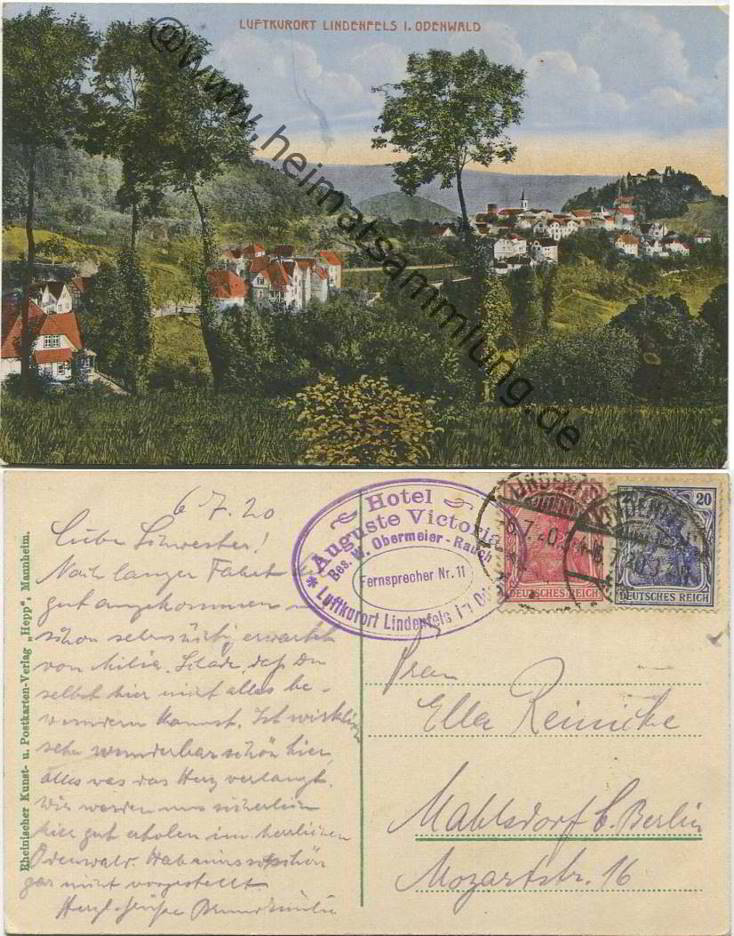 LUFTKURORT LINDENFELS I. ODENWALD
@www.heimatsammlung.de
6.7.20
Liebe Schwester!
Nach langer Fahrt
gut angekommen
schon sehnsüchtig erwartet
von Schade, daß Du
selbst hier nicht alles be-
wundern kannst. Ist wirklich
sehr wunderbar schön hier,
alles was das Herz verlangt.
Wir werden uns sicherlich
hier gut erholen im herrlichen
Odenwald. Hab mirs so schön
gar nicht vorgestellt
Herzl. Grüße
Rheinischer Kunst- u. Postkarten-Verlag „Hepp", Mannheim.
Hotel
Auguste Victoria
Bes. W. Obermeier-Rauch
Fernsprecher Nr. 11
* Luftkurort Lindenfels im Od
DEUTSCHES REICH
20
DEUTSCHES REICH
LINDENFELS
6.7.20
Frau
Ella Reinicke
Mahlsdorf b. Berlin
Mozartstr. 16